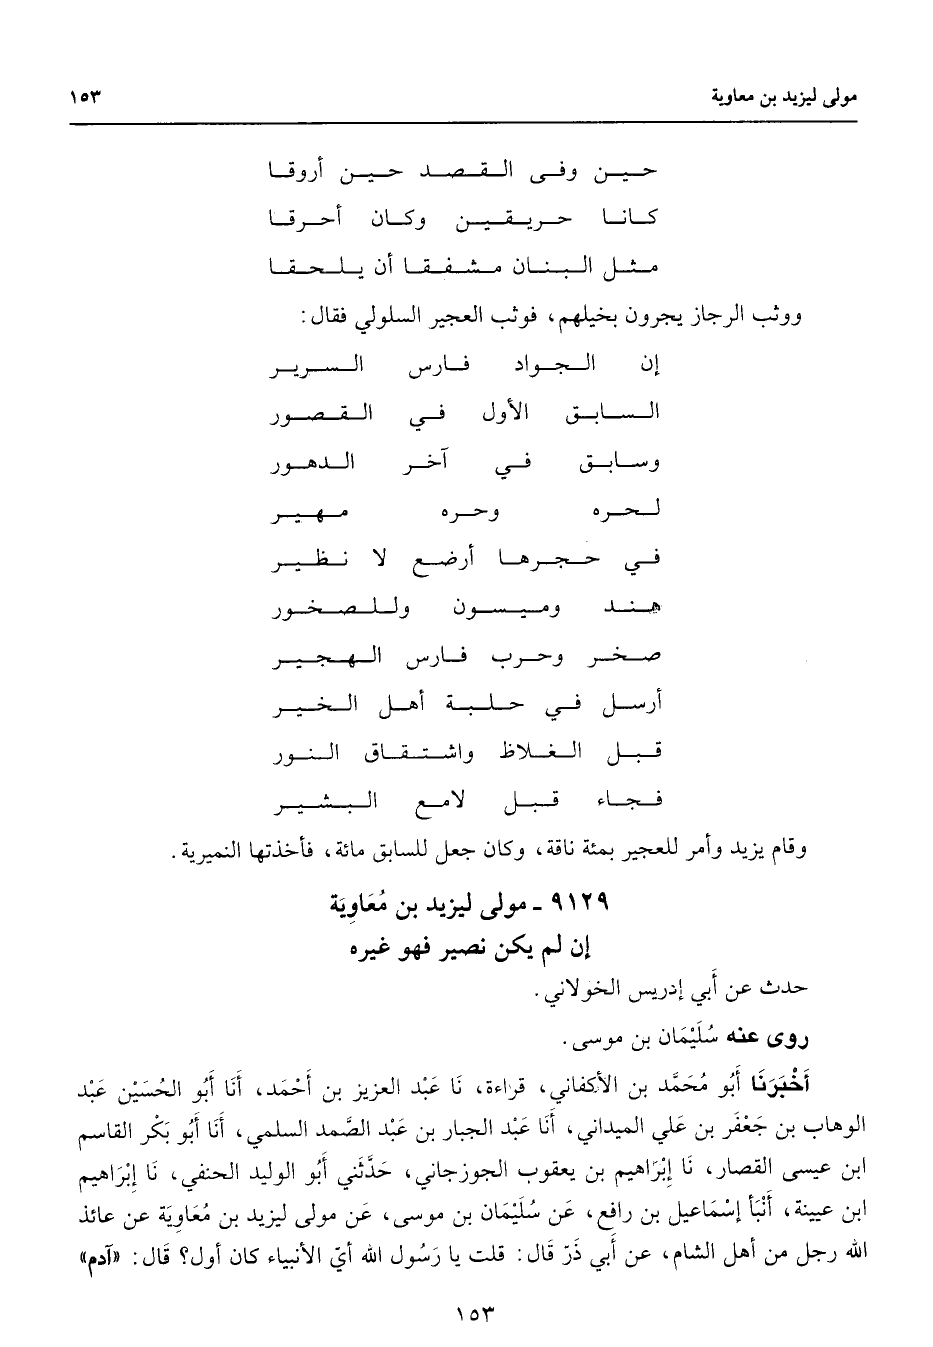 مولى ليزيد بن معاوية ١٥٣
حين وفى القصد حين أروقا
كانا حريقين وكان أحرقا
مثل البنان مشفقا أن يلحقا
ووثب الرجاز يجرون بخيلهم، فوثب العجير السلولي فقال:
إن الجواد فارس السرير
السابق الأول في القصور
وسابق في آخر الدهور
لحره وحره مهير
في حجرها أرضع لا نظير
هند وميسون وللصخور
صخر وحرب فارس الهجير
أرسل في حلبة أهل الخير
قبل الغلاظ واشتقاق النور
فجاء قبل لامع البشير
وقام يزيد وأمر للعجير بمئة ناقة، وكان جعل للسابق مائة، فأخذتها النميرية.
٩١٢٩ ـ مولى ليزيد بن مُعَاوِيَة
إن لم يكن نصير فهو غيره
حدث عن أَبي إدريس الخولاني.
روى عنه سُلَيْمَان بن موسى.
أَخْبَرَنَا أَبُو مُحَمَّد بن الأكفاني، قراءة، نَا عَبْد العزيز بن أَحْمَد، أَنَا أَبُو الحُسَيْن عَبْد
الوهاب بن جَعْفَر بن عَلي الميداني، أَنَا عَبْد الجبار بن عَبْد الصَّمد السلمي، أَنَا أَبُو بَكْر القاسم
ابن عيسى القصار، نَا إِبْرَاهيم بن يعقوب الجوزجاني، حَدَّثَني أَبُو الوليد الحنفي، نَا إِبْرَاهيم
ابن عيينة، أَنْبَأ إسْمَاعيل بن رافع، عَن سُلَيْمَان بن موسى، عَن مولى ليزيد بن مُعَاوِيَة عن عائذ
الله رجل من أهل الشام، عن أَبي ذَرّ قَال: قلت يا رَسُول الله أيّ الأنبياء كان أول؟ قال: «آدم»
١٥٣